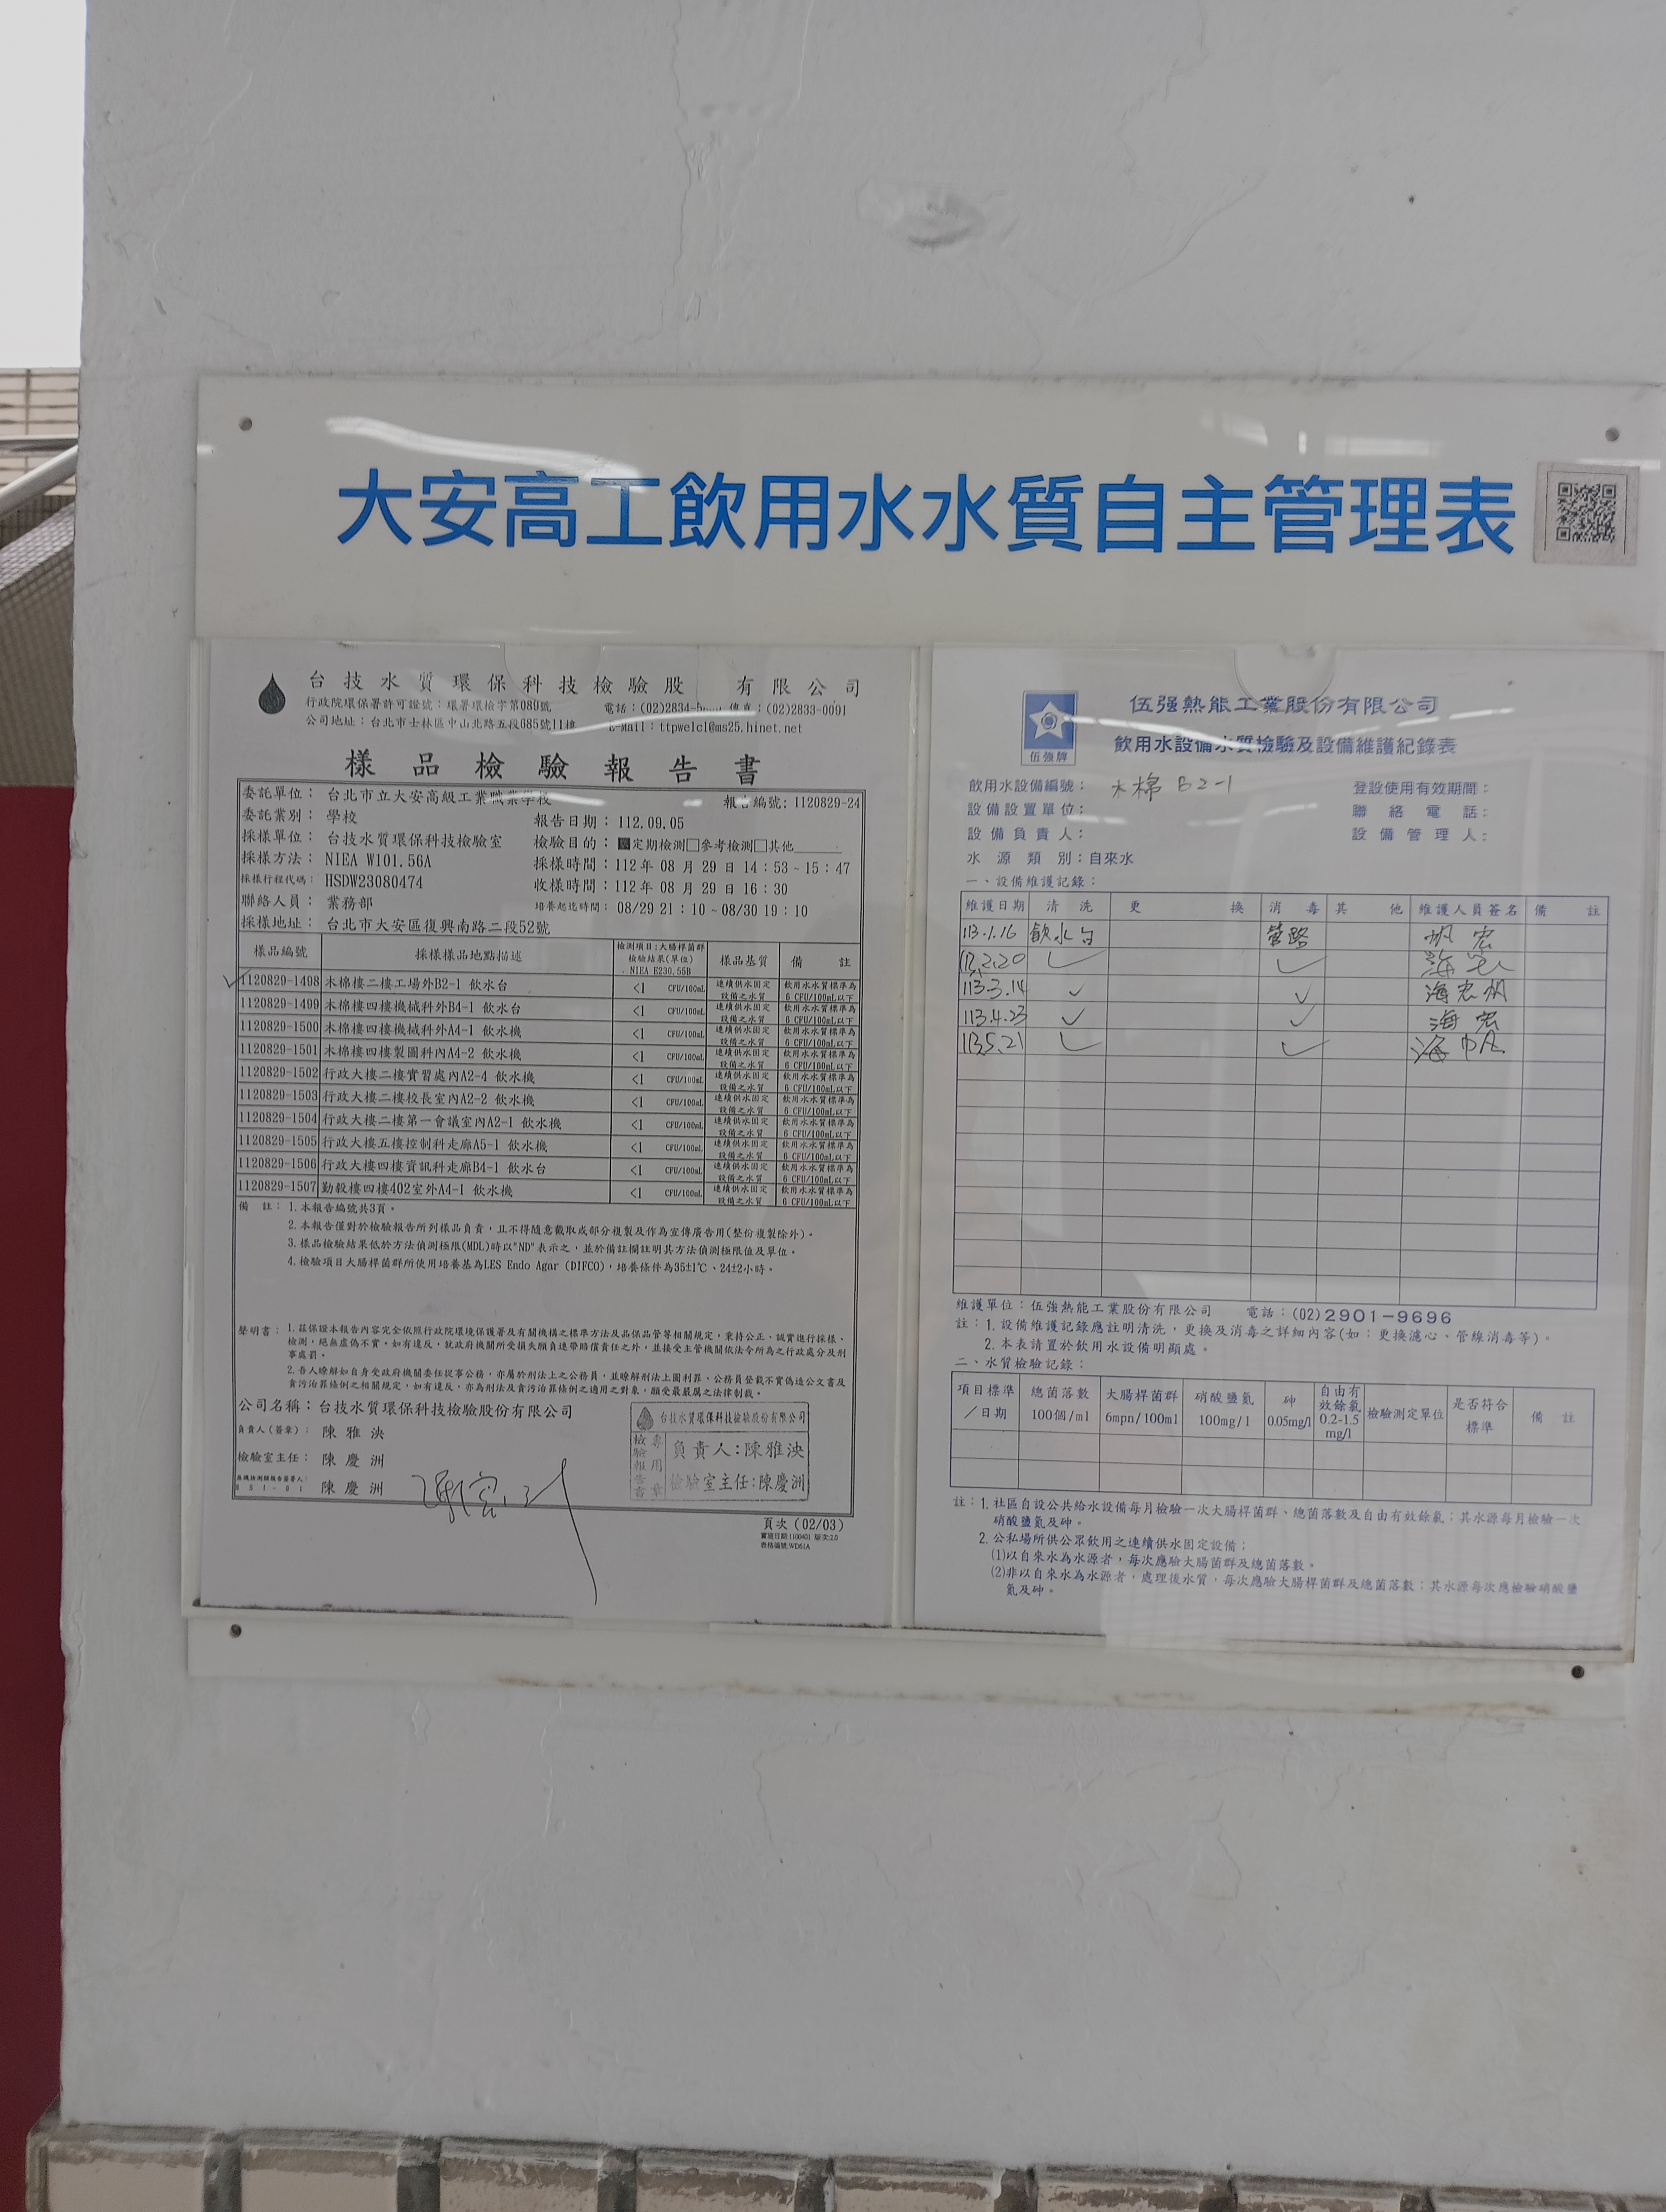 大安高工飲用水水質自主管理表
台技水質環保科技檢驗股 有限公司
行政院環保署許可證號：環署環檢字第089號 電話：(02)2834- 傳真：(02)2833-0091
公司地址：台北市士林區中山北路五段685號11樓 E-Mail：ttpwelcl@ms25.hinet.net
樣品檢驗報告書
委託單位： 台北市立大安高級工業職業學校 報告編號：1120829-24
委託業別： 學校 報告日期：112.09.05
採樣單位： 台技水質環保科技檢驗室 檢驗目的：■定期檢測□參考檢測□其他
採樣方法： NIEA W101.56A 採樣時間：112年 08 月 29 日 14：53～15：47
採樣行程代碼： HSDW23080474 收樣時間：112年 08 月 29 日 16：30
聯絡人員： 業務部 培養起迄時間： 08/29 21：10～08/30 19：10
採樣地址： 台北市大安區復興南路二段52號
樣品編號 採樣樣品地點描述 檢測項目：大腸桿菌群 檢驗結果(單位) NIEA E230.55B 樣品基質 備註
✓1120829-1498 木棉樓二樓工場外B2-1 飲水台 <1 CFU/100mL 連續供水固定設備之水質 飲用水水質標準為6 CFU/100mL以下
1120829-1499 木棉樓四樓機械科外B4-1 飲水台 <1 CFU/100mL 連續供水固定設備之水質 飲用水水質標準為6 CFU/100mL以下
1120829-1500 木棉樓四樓機械科外A4-1 飲水機 <1 CFU/100mL 連續供水固定設備之水質 飲用水水質標準為6 CFU/100mL以下
1120829-1501 木棉樓四樓製圖科內A4-2 飲水機 <1 CFU/100mL 連續供水固定設備之水質 飲用水水質標準為6 CFU/100mL以下
1120829-1502 行政大樓二樓實習處內A2-4 飲水機 <1 CFU/100mL 連續供水固定設備之水質 飲用水水質標準為6 CFU/100mL以下
1120829-1503 行政大樓二樓校長室內A2-2 飲水機 <1 CFU/100mL 連續供水固定設備之水質 飲用水水質標準為6 CFU/100mL以下
1120829-1504 行政大樓二樓第一會議室內A2-1 飲水機 <1 CFU/100mL 連續供水固定設備之水質 飲用水水質標準為6 CFU/100mL以下
1120829-1505 行政大樓五樓控制科走廊A5-1 飲水機 <1 CFU/100mL 連續供水固定設備之水質 飲用水水質標準為6 CFU/100mL以下
1120829-1506 行政大樓四樓資訊科走廊B4-1 飲水台 <1 CFU/100mL 連續供水固定設備之水質 飲用水水質標準為6 CFU/100mL以下
1120829-1507 勤毅樓四樓402室外A4-1 飲水機 <1 CFU/100mL 連續供水固定設備之水質 飲用水水質標準為6 CFU/100mL以下
備 註：1.本報告編號共3頁。
2.本報告僅對於檢驗報告所列樣品負責，且不得隨意截取或部分複製及作為宣傳廣告用(整份複製除外)。
3.樣品檢驗結果低於方法偵測極限(MDL)時以"ND"表示之，並於備註欄註明其方法偵測極限值及單位。
4.檢驗項目大腸桿菌群所使用培養基為LES Endo Agar (DIFCO)，培養條件為35±1℃、24±2小時。
聲明書：1.茲保證本報告內容完全依照行政院環境保護署及有關機構之標準方法及品保品管等相關規定，秉持公正、誠實進行採樣、
檢測，絕無虛偽不實。如有違反，就政府機關所受損失願負連帶賠償責任之外，並接受主管機關依法令所為之行政處分及刑
事處罰。
2.吾人瞭解如自身受政府機關委任從事公務，亦屬於刑法上之公務員，並瞭解刑法上圖利罪、公務員登載不實偽造公文書及
貪污治罪條例之相關規定，如有違反，亦為刑法及貪污治罪條例之適用之對象，願受最嚴厲之法律制裁。
公司名稱：台技水質環保科技檢驗股份有限公司
負責人(簽章)： 陳雅泱
檢驗室主任： 陳慶洲
陳慶洲
台技水質環保科技檢驗股份有限公司
檢驗報告書
專用章
負責人：陳雅泱
檢驗室主任：陳慶洲
頁次 (02/03)
伍強牌
伍强熱能工業股份有限公司
飲用水設備水質檢驗及設備維護紀錄表
飲用水設備編號： 木棉 B2-1 登設使用有效期間：
設備設置單位： 聯絡電話：
設備負責人： 設備管理人：
水源類別：自來水
一、設備維護記錄：
維護日期 清洗 更換 消毒 其他 維護人員簽名 備註
113.1.16 飲水台 管路
113.2.20 ✓ ✓
113.3.14 ✓ ✓
113.4.23 ✓ ✓
113.5.21 ✓ ✓
維護單位：伍強熱能工業股份有限公司 電話：(02)2901-9696
註：1.設備維護記錄應註明清洗，更換及消毒之詳細內容(如；更換濾心、管線消毒等)。
2.本表請置於飲用水設備明顯處。
二、水質檢驗記錄：
項目標準／日期 總菌落數100個/ml 大腸桿菌群6mpn/100ml 硝酸鹽氮100mg/l 砷0.05mg/l 自由有效餘氯0.2-1.5mg/l 檢驗測定單位 是否符合標準 備註
註：1.社區自設公共給水設備每月檢驗一次大腸桿菌群、總菌落數及自由有效餘氯；其水源每月檢驗一次
硝酸鹽氮及砷。
2.公私場所供公眾飲用之連續供水固定設備；
⑴以自來水為水源者，每次應驗大腸菌群及總菌落數。
⑵非以自來水為水源者，處理後水質，每次應驗大腸桿菌群及總菌落數；其水源每次應檢驗硝酸鹽
氮及砷。